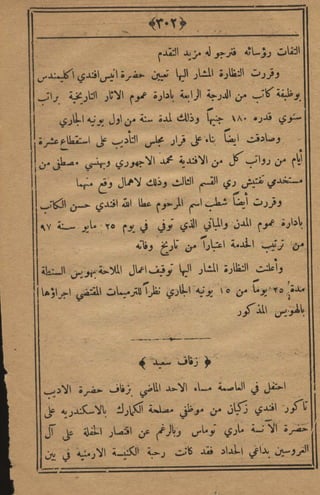 ﴿٣٠٢﴾
التفات رؤسائه فنرجو له مزيد التقدم
وقررت النظارة المشار اليها تعيين حضرة انيس افندي اكليمندس
بوظيفة كاتب من الدرجة الرابعة بادارة عموم الآثار التاريخية براتب
سنوي قدره ١٨٠ جنيهاً وذلك لمدة سنة من اول يونيه الجاري
وصادقت ايضاً بناء على قرار مجلس التأديب على استقطاع عشرة
أيام من رواتب كل من الافندية محمد الاجهوري وبهنسي مصطفى من
مستخدمي تفتيش ري القسم الثالث وذلك لاهمال وقع منهما
وقررت أيضاً شطب اسم المرحوم عطا الله افندي حسن الكاتب
بادارة عموم المدن والمباني الذي توفي في يوم ٢٥ مايو سنة ٩٧
من ترتيب الخدمة اعتباراً من تاريخ وفاته
وأعلنت النظارة المشار اليها توقيف اعمال الملاحة بهويس السنطة
مدة ٢٥ يوماً من ١٥ يونيه الجاري نظراً للترميمات المقتضي اجراؤها
بالهويس المذكور
﴿ زفاف سعيد ﴾
احتفل في العاصمة مساء الاحد الماضي بزفاف حضرة الاديب
تاكور افندي زكيان من موظفي مصلحة الكمارك بالاسكندرية على
حضرة الآنسة ماري توماس وبالرغم عن اقتصار الحفلة على آل
العروسين بداعي الحداد فقد كانت رحبة الكنيسة الارمنية في بين